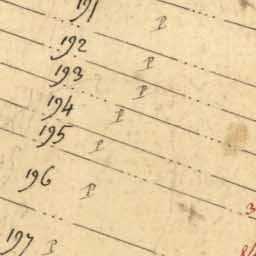 191 P
192 P
193 P
194 P
195 P
196 P
3
197 P